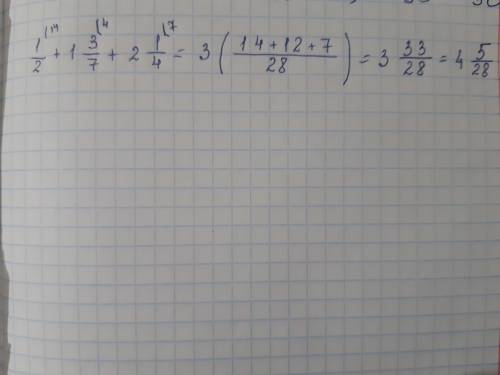 1/2 ⌊14 + 1 3/7 ⌊4 + 2 1/4 ⌊7 = 3 ( 14 + 12 + 7 / 28 ) = 3 33/28 = 4 5/28